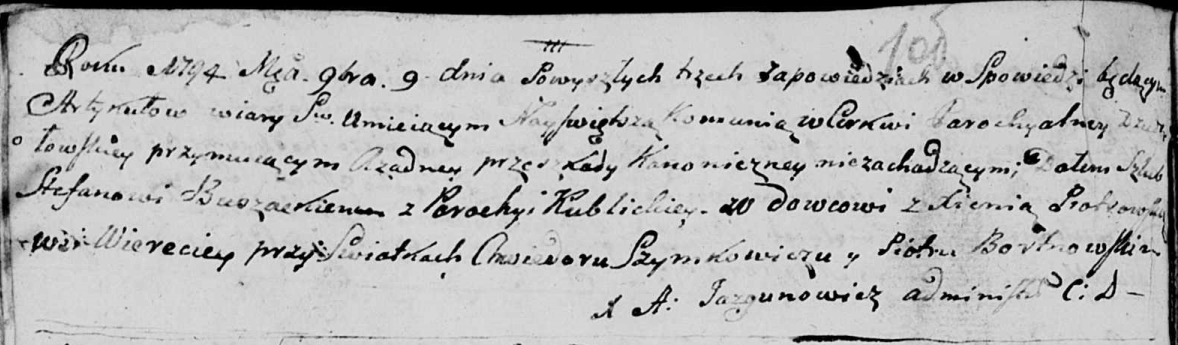 105
Roku 1794 Mca. 9bra. 9. dnia Powyszłych trzech Zapowiedziach w Spowiedzi będącym
Artykułow wiary Sw. Umieiącym Nayswiętszą Komunią w Cerkwi Parochyalney
towskiey przymuiącym Azadney przeszkody Kanoniczney niezachadzącymi, Dałem Szlub
Stefanowi z Parochyi Kublickiey. wdowcowi z Xienią Piotrowską
wsi Wiereciey przy Swiatkach Chwiedoru Szymkowiczu y Piotru Bortnowskim
X A: Jazgunowicz administ C: D